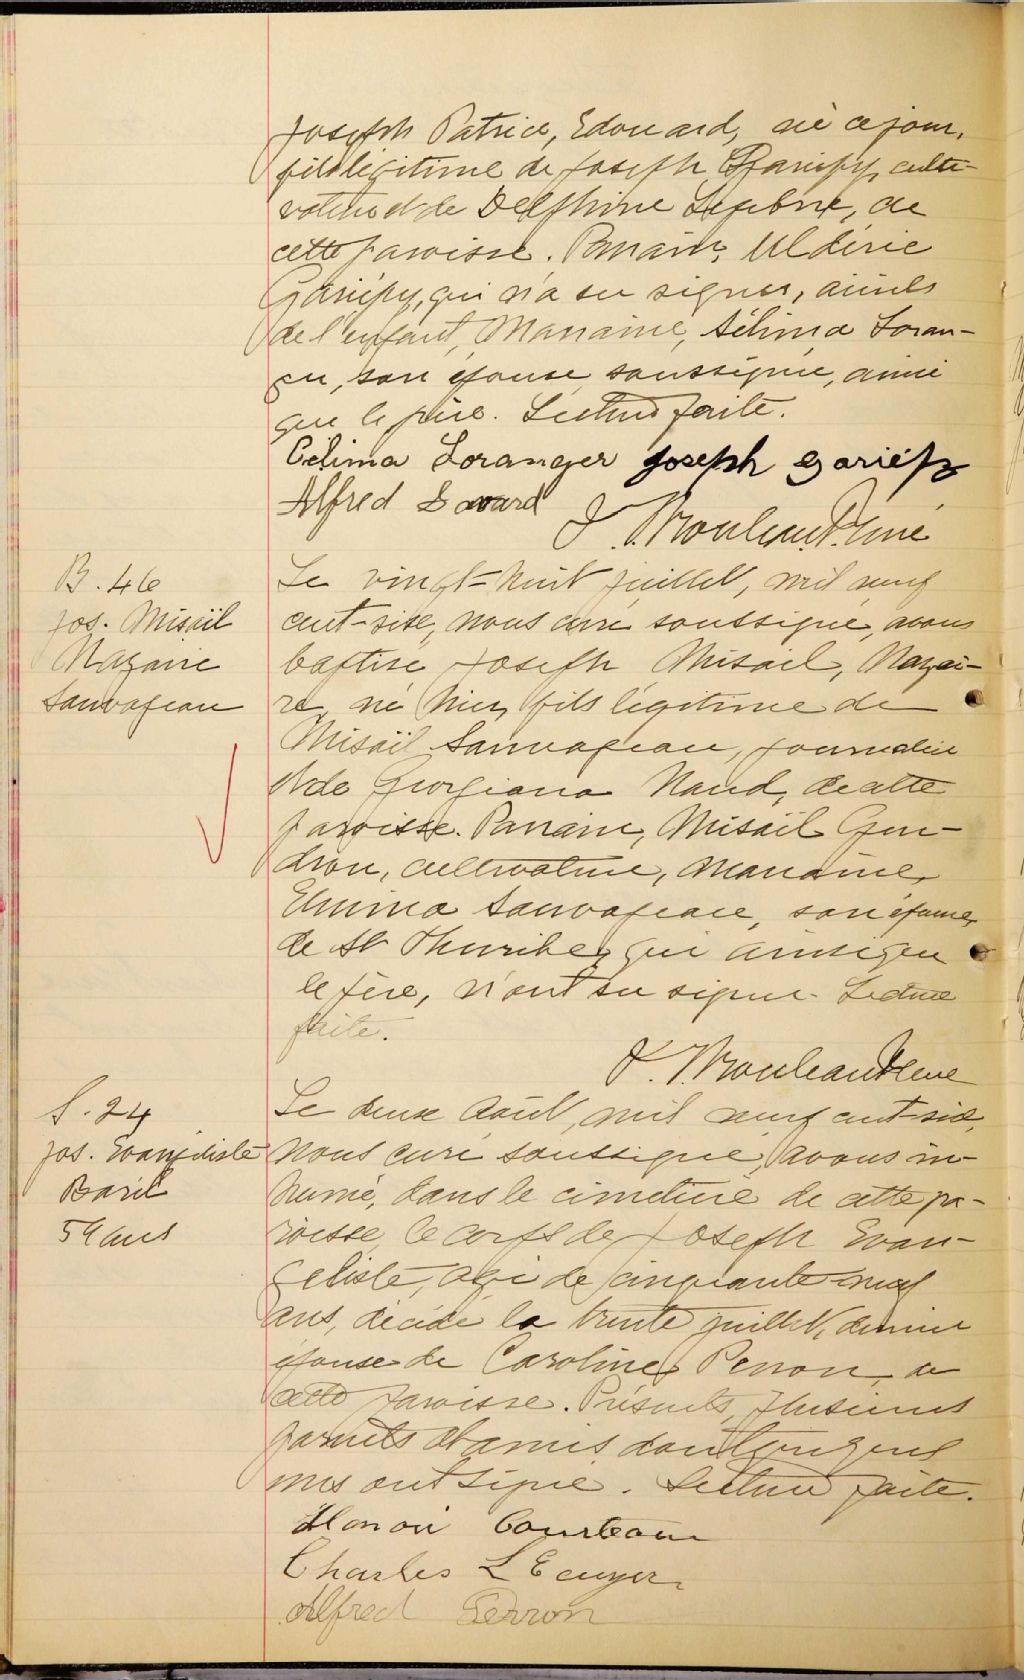 Joseph Patrice, Edouard, né ce jour,
fils légitime de Joseph Gariépy, culti-
vateur et de Delphine Lefebvre, de
cette paroisse. Parrain, Uldéric
Gariépy, qui n'a su signer,
de l'enfant, Marraine, Célima Loran-
ger, son épouse soussignée, ainsi
que le père. Lecture faite.
Célima Loranger Joseph Gariépy
Alfred Savard
J. Rouleau Ptre curé
B. 46
Jos. Misaïl
Nazaire
Sauvageau
Le vingt-huit juillet, mil neuf
cent-six, nous curé soussigné, avons
baptisé Joseph Misaïl, Nazai-
re, né hier, fils légitime de
Misaïl Sauvageau, journalier
et de Georgiana Naud, de cette
paroisse. Parrain, Misaïl Gen-
dron, cultivateur, Marraine,
Elmina Sauvageau, son épouse,
de St Thuribe, qui ainsi que
le père, n'ont su signer. Lecture
faite.
J. Rouleau Ptre curé
S. 24
Jos. Evangéliste
Baril
59 ans
Le deux Août, mil neuf cent-six,
nous curé soussigné, avons in-
humé, dans le cimetière de cette pa-
roisse, le corps de Joseph Evan-
géliste, agé de cinquante-neuf
ans, décédé le trente juillet, dernier
époux de Caroline Perron, de
cette paroisse. Présents, plusieurs
parents et amis dont quelques
uns ont signé. Lecture faite.
Courteau
Charles L Ecuyer
Alfred Perron